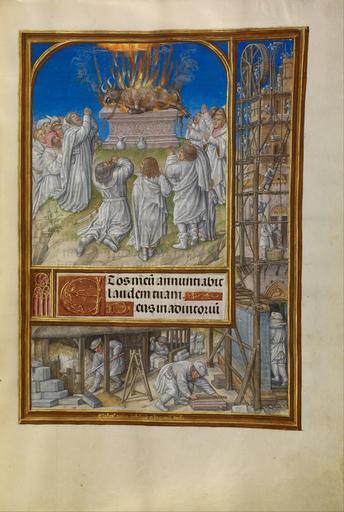 Et os meū annunciabit
laudem tuam
Deus in adiutoriū